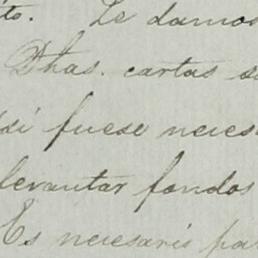 to. Le damos
Dhas. cartas s
si fuese neces
levantar fondos
Es necesario pa